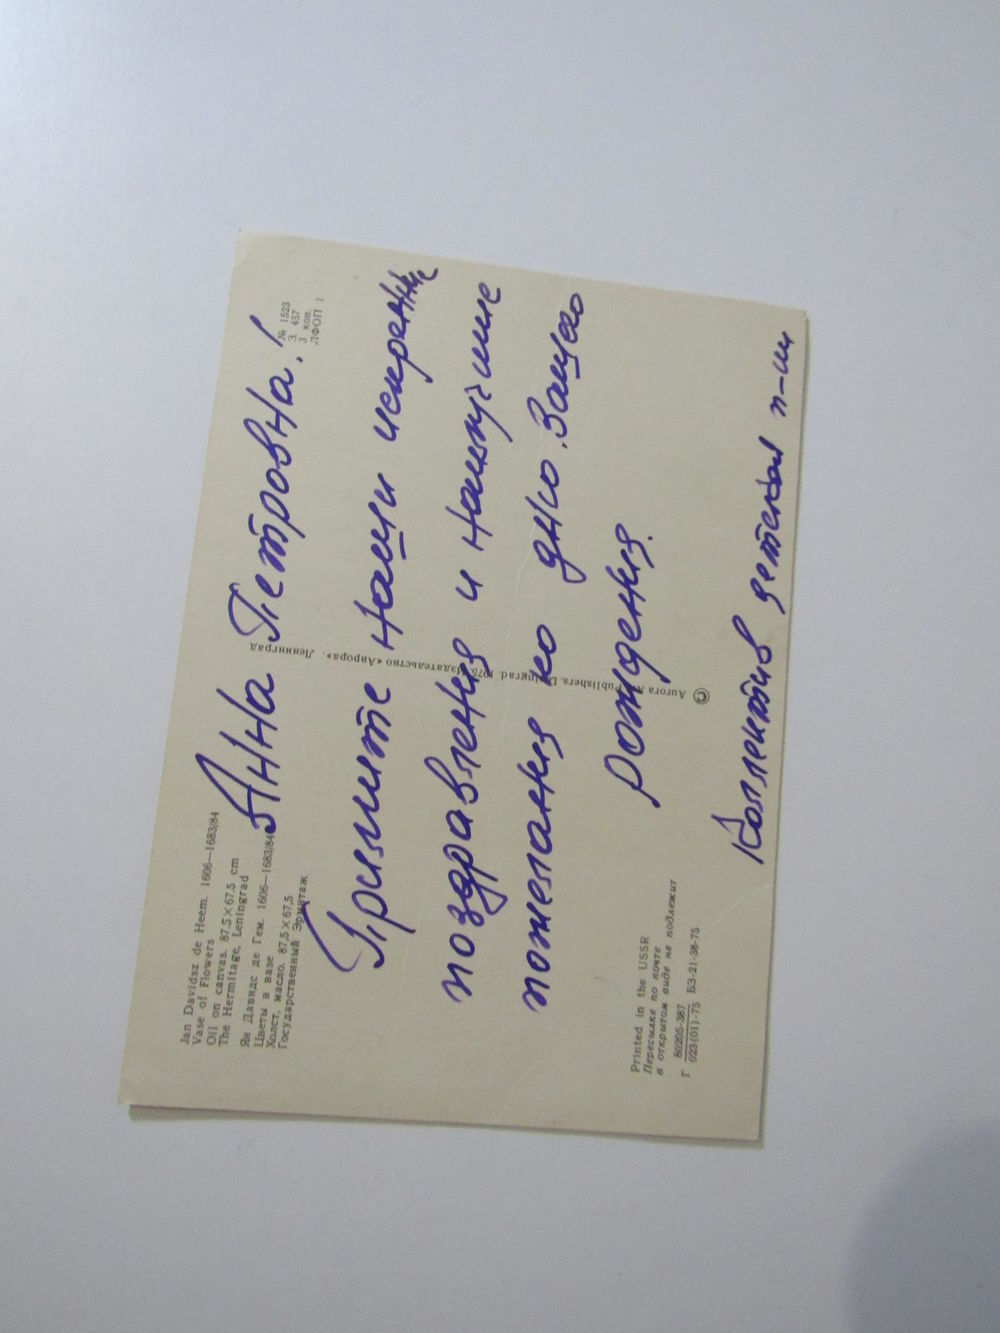 Jan Davidsz de Heem. 1606—1683/84
Vase of Flowers
Oil on canvas. 87,5×67,5 cm
The Hermitage, Leningrad
Ян Давидс де Гем. 1606—1683/84
Цветы в вазе
Холст, масло. 87,5×67,5
Государственный Эрмитаж
№ 1523
З. 457
3 коп.
ЛФОП 1
Анна Петровна!
Примите наши искренние
поздравления и наилучшие
пожелания ко дню Вашего
рождения.
Коллектив детской п-ки
Aurora Art Publishers. Leningrad. 1975. Издательство «Аврора». Ленинград
©
Printed in the USSR
Пересылке по почте
в открытом виде не подлежит
Г 80205-387
023(01)-75 БЗ-21-38-75